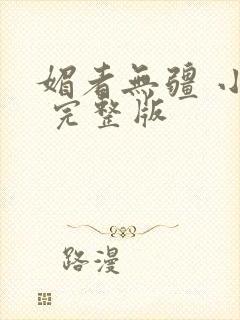 媚者無疆 小
完整版
路漫